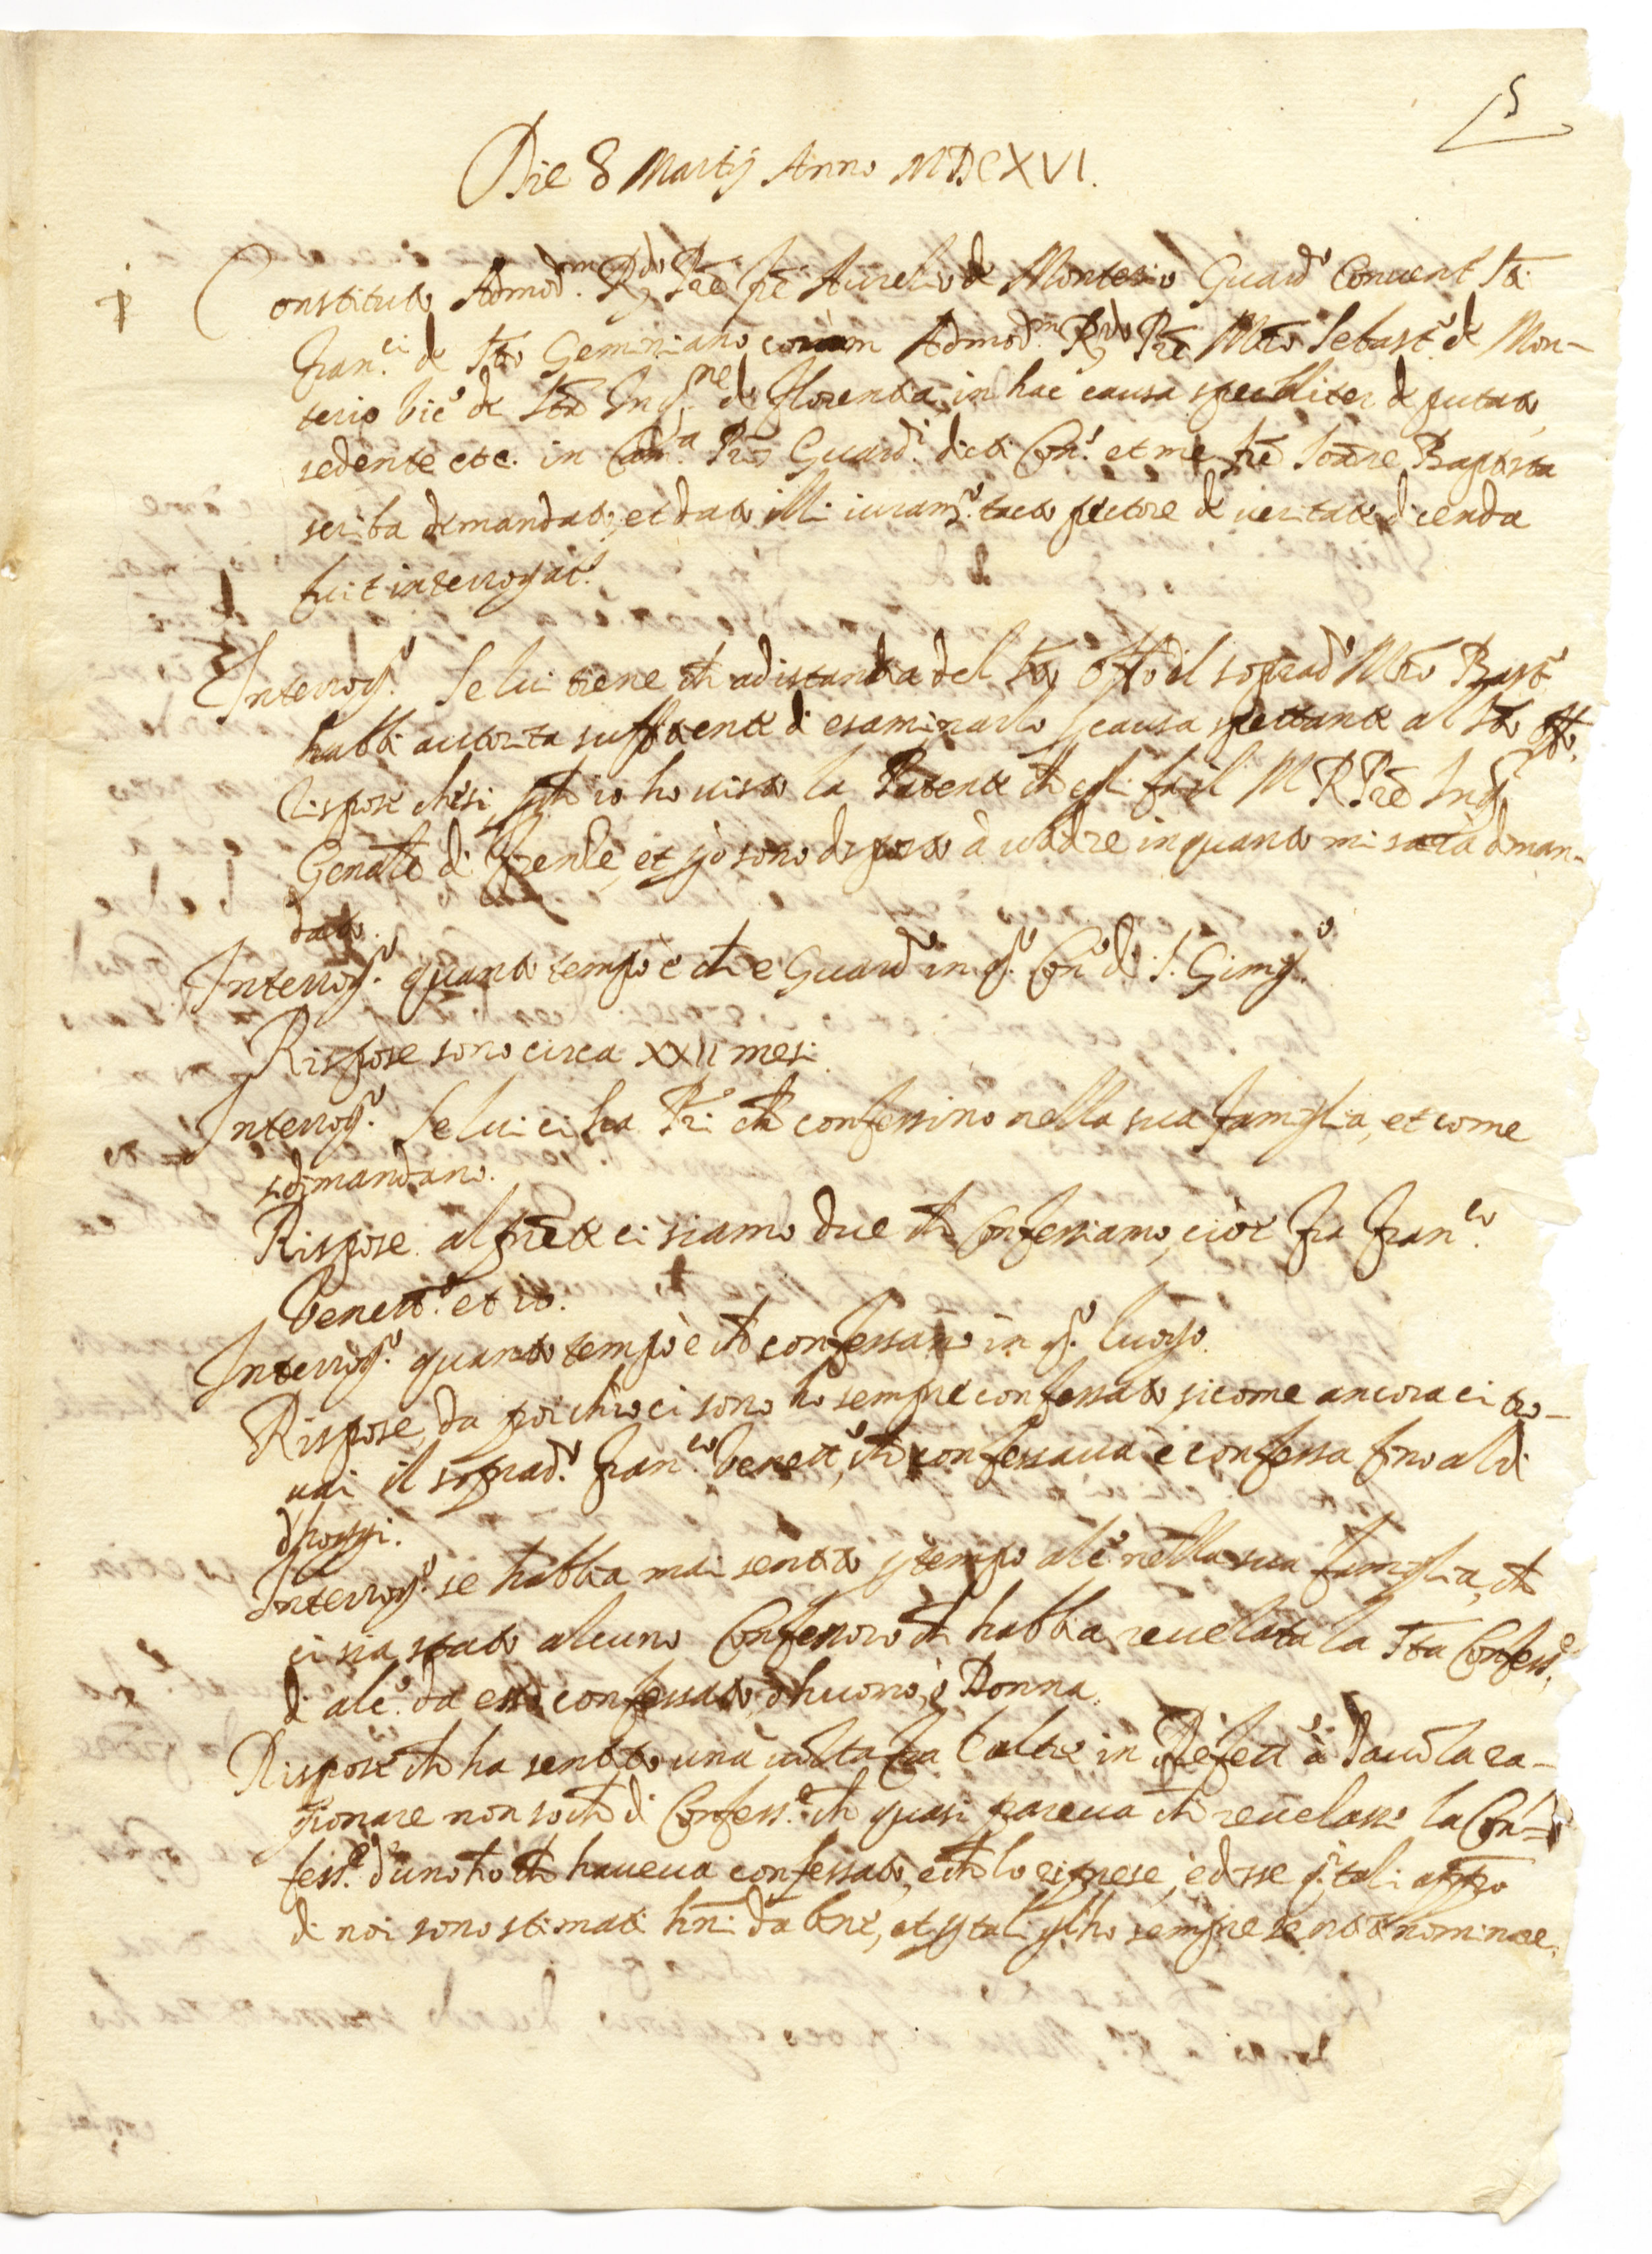 5
Die 8 Martij Anno MDCXVI.
Constituto Admod.m R.do Pre fre Aurelio de Monterio Guard.o Conuent. Sti
Fran.ci de Sto Geminiano coram Admod.m R.do Pre Mro Sebast.o de Mon-
terio Vic.o de Sto Inq.ne de Florentia in hac causa specialiter deputato,
sedente etc. in Cam.a Pris Guard.i dicti Con.s et me fre Ioanne Baptista
scriba demandato, et dato illi iuram.o tacto pectore de ueritate dicenda
fuit interrogat.s
Interrog.o Se lui tiene ch adistantia del Sto Offo il soprad.o Mro Bast.o
habbi autorita suffitiente di esaminarlo p causa spettante al Sto Offo.
Rispose che si, pch io ho uisto la Patente ch gli fa il M R Pre Inq.r
Genale di Firenze, et io sono disposto à ubidire inquanto mi sarà diman-
dato.
Interrog.o quanto tempo è ch e Guard.o in q.o Con.o di S. Gimig.o
Rispose sono circa XXII mesi.
Interrog.o Se lui ci ha Pri ch confessino nella sua famiglia, et come
si dimandano.
Rispose al pnte ci siamo due ch Confessiamo, cioè fra Fran.co
Venett.o et io.
Interrog.o quanto tempo è ch confessano in q.o luogo.
Rispose, da poi ch'io ci sono ho sempre confessato, sicome ancora ci tro-
uai il soprad.o Fran.co Venett.o, ch confessaua è confessa fino al dì
d'hoggi.
Interrog.o se habbia mai sentito p tempo alc.o nella sua famiglia, ch
ci sia stato alcuno Confessoro ch habbia reuelata la Sta Confess.e
di alc.o da esso confessato, ò huomo, ò Donna.
Rispose ch ha sentito una uolta fra l'altre in Refett.o à Tauola ra-
gionare non so ch di Confess.e ch quasi pareua ch reuelassi la Con-
fess.e d'uno ho ch haueua confessato, e ch lo riprese, e disse q.i tali appo
di noi sono stimati hni da bene, et p tali gl'ho sempre sentiti nominare.